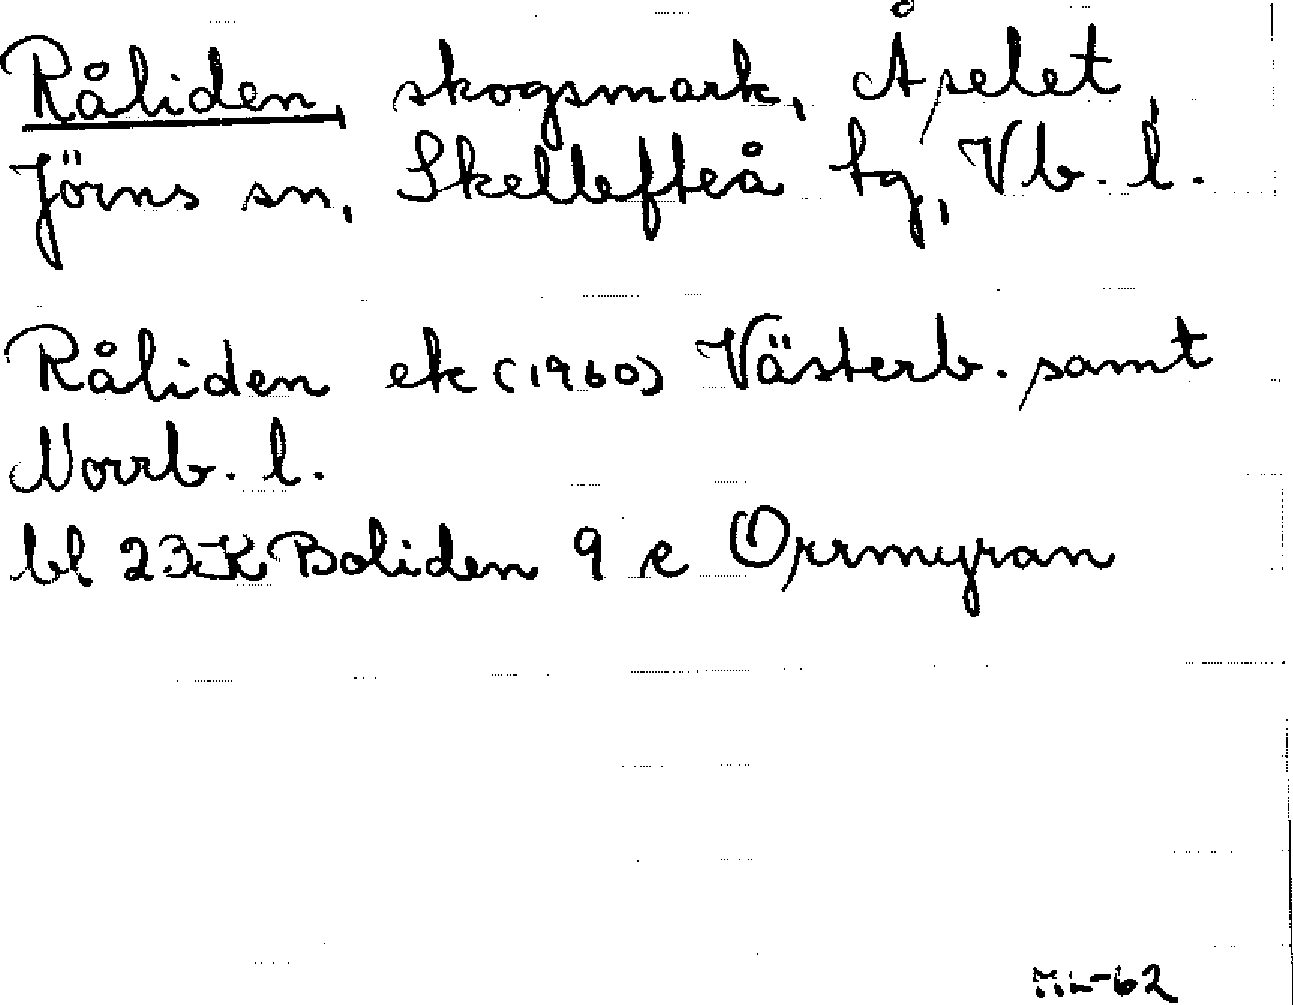 Råliden, skogsmark, Åselet,
Jörns sn, Skellefteå tg, Vb. l.
Råliden ek (1960) Västerb. samt
Norrb. l.
bl 23K Boliden 9 e Orrmyran
ML-62